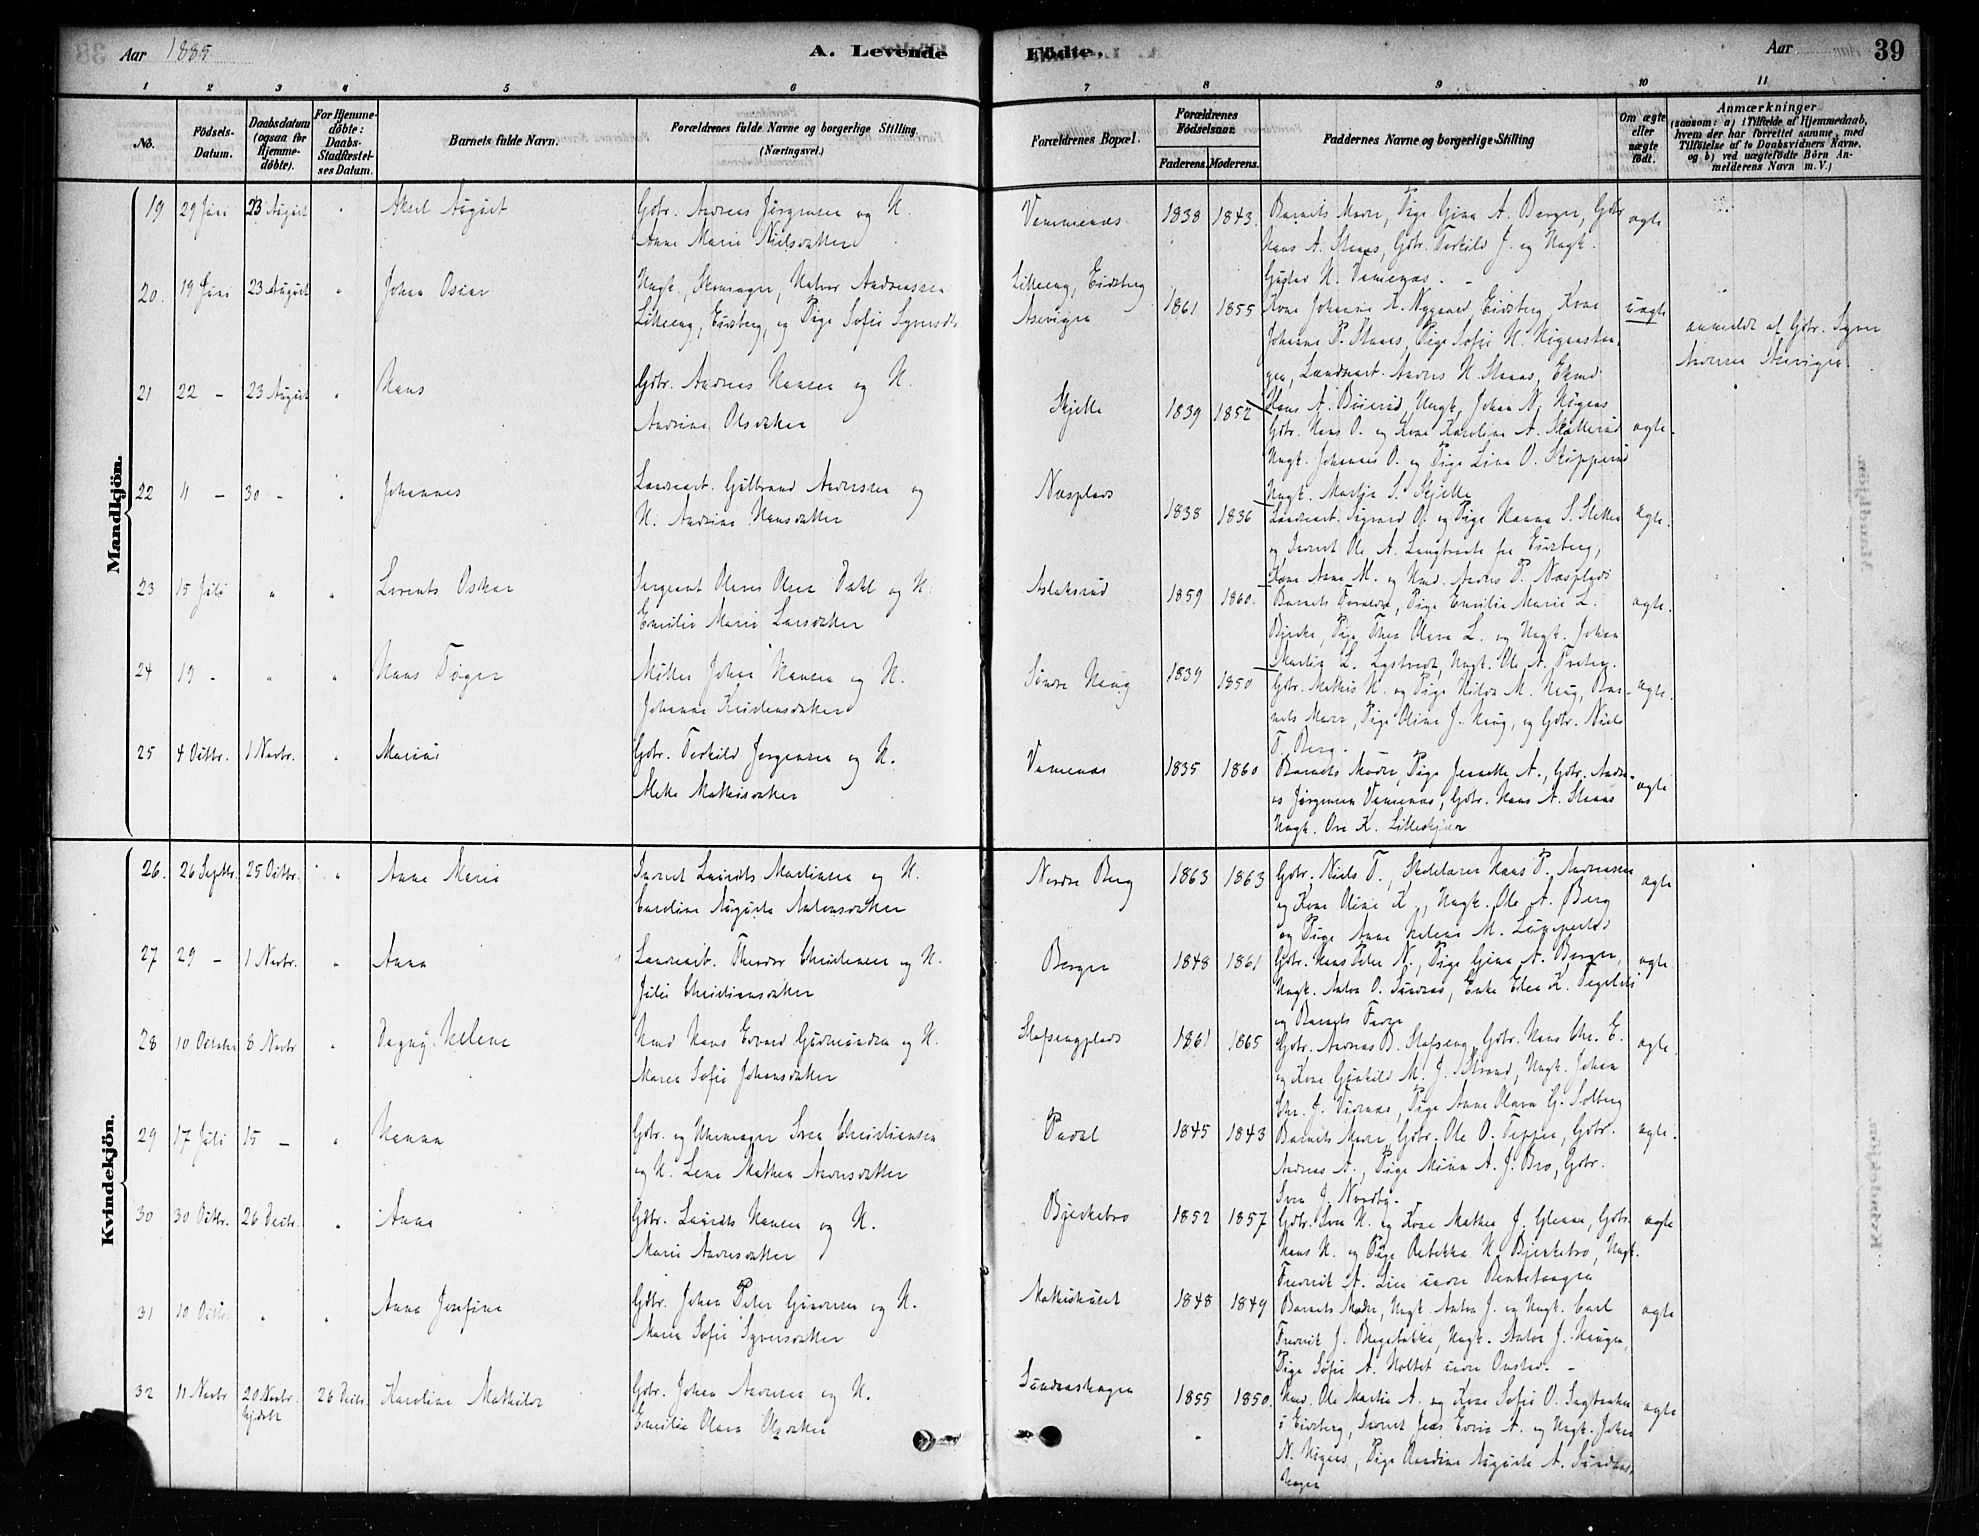 Aar 1885 A. Levende Födte. Aar 39
1 2 3 4 5 6 7 8 9 10 11
No. Födsels-Datum. Daabsdatum (ogsaa for Hjemmedöbte). For Hjemmedöbte: Daabs-Stadfæstelses Datum. Barnets fulde Navn. Forældrenes fulde Navne og borgerlige Stilling. (Næringsvei.) Forældrenes Bopæl. Forældrenes Födselsaar. Faderens. Moderens. Faddernes Navne og borgerlige Stilling Om ægte eller uægte födt. Anmærkninger (saasom: a) i Tilfælde af Hjemmedaab, hvem der har forrettet samme, med Tilföielse af to Daabsvidners Navne, og b) ved uægtefödte Börn Anmelderens Navn m.V.)
Mandkjön.
19 29 Juni 23 August " Aksel August Gdbr. Andreas Jørgensen og H. Vammenæs 1838 1843. Barnets Moder, Pige Gina A. Berger, Gdbr ægte
Anne Marie Nielsdatter Hans A. Staaas, Gdbr. Terkild J. og Ungk.
Gustav H. Vamenæs. -
20. 19 Juni 23 August " Johan Oscar Ungk., Skomager, Halvor Andreassen Lilleeng, Eidsberg
Lilleeng, Eidsberg, og Pige Sofie Syversdtr Aserigen 1861 1855 Kone Johanne K. Nygaard, Eidsberg, Kone uægte anmeldt af Gdbr. Syver
Johanne P. Staaas, Pige Sofie H. Högenstan- Andersen Aserigen
gen, Landarb. Anders H. Staaas, Ekmd.
21 22 - 23 August " Hans Gdbr. Andreas Hansen og H. Skjelle 1839 1852 Hans A. Böierud, Ungk. Johan N. Högnes
Andrine Olsdatter Gdbr. Hans O. og Kone Karoline A. Slatterud ægte.
Ungk. Johannes O. og Pige Lina O. Skipperud
Ungk. Martin S. Skjelle
22 11 - 30 - " Johannes Landarb. Gulbrand Andersen og Næsplads 1838 1836
H. Andrine Hansdatter Landarb. Sigvard O. og Pige Hanna S. Sletten ægte.
og Inderst Ole A. Langbraate fra Eidsberg,
Kone Anne M. og Hmd. Anders P. Næsplads
23 15 Juli " " Lorents Oskar Sergeant Olaves Olsen Dahl og H. Aslaksrud 1859 1860. Barnets Forældre, Pige Emilie Marie L. ægte.
Emilie Marie Larsdatter Bjerke, Pige Thea Olava L. og Ungk. Johan
Martin L. Lystvedt, Ungk. Ole A.
24 19 - " " Hans Töger Möller Johan Hansen og H. Söndre Haug 1839 1850 Gdbr. Mathis H. og Pige Hilda M. Haug, Bar- ægte.
Johanne Kristensdatter nets Moder, Pige Oline J. Haug, og Gdbr. Niels
T. Berg.
25 4 Oktbr. 1 Novbr. " Marius Gdbr. Terkild Jørgensen og H. Vamenæs 1835 1860 Barnets Moder, Pige Jenette A., Gdbr. Andre- ægte
Alette Mathisdatter as Jørgensen Vamenæs, Gdbr. Hans A. Staaas
Ungk. Ove K. Lilleskjær
Kvindekjön.
26. 26 Septbr. 25 Oktbr. " Anne Marie Inderst Laurits Martinsen og H. Nordre Berg 1863 1863 Gdbr. Niels T., Skolelærer Hans P. Andreassen ægte
Caroline Augusta Antonsdatter og Kone Oline K., Ungk. Ole A. Berg
og Pige Anne Helene M.
27 29 - 1 Novbr. " Anna Landarb. Theodor Christensen og H. Berger 1848 1861 Gdbr. Hans Peter N., Pige Gina A. Berger, ægte
Julie Christiansdatter Ungk. Anton O. Sundnæs, Enke Elen K.
og Barnets Fader
28 10 Oktober 8 Novbr " Dagny Helene Hmd Hans Edvard Gudmundsen og H. Slafsengplads 1861 1865 Gdbr. Andreas D. Slafseng, Gdbr. Hans Chr. E. ægte.
Maren Sofie Johansdatter og Kone Gunhild M. J. Strand, Ungk. Johan
Chr. J. Vidnæs, Pige Anne Olava G. Solberg
29 17 Juli 15 - " Hanna Gdbr. og Uhrmager Sven Christiansen Padal 1845 1843 Barnets Moder, Gdbr. Ole O. Tepper, Gdbr. ægte.
og H. Lena Mathea Andersdatter Andreas A., Pige Mina A. J. Bro, Gdbr.
Sven J. Nordby.
30 30 Oktbr. 26 Decbr. " Anna Gdbr. Laurits Hansen og H. Bjerkebro 1852 1857 Gdbr. Sven H. og Kone Mathea J. Glenne, Gdbr. ægte
Marie Andersdatter Hans H. og Pige Rebekka H. Bjerkebro, Ungk.
Fredrik A. Lien
31 10 Oktbr. " " Anna Josefine Gdbr. Johan Peter Gundersen og H. Mathishuset 1848 1849 Barnets Moder, Ungk. Anton J. og Ungk. Carl ægte
Maren Sofie Syversdatter Fredrik J. Bergebakke, Ungk. Anton J. Haugen,
Pige Sofie A. Holtet nedre Onstad. -
32 11 Novbr 20 Novbr. hjdöbt 26 Decbr. Karoline Mathilde Gdbr. Johan Andersen og H. Sundnæshagen 1855 1850. Hmd. Ole Martin A. og Kone Sofie O. ægte
Emilie Olava Olsdatter i Eidsberg, Inderst Jens Edvin A. og Ungk. Johan
N. Högnes, Pige Randine Augusta A. Sundnæs-
hagen